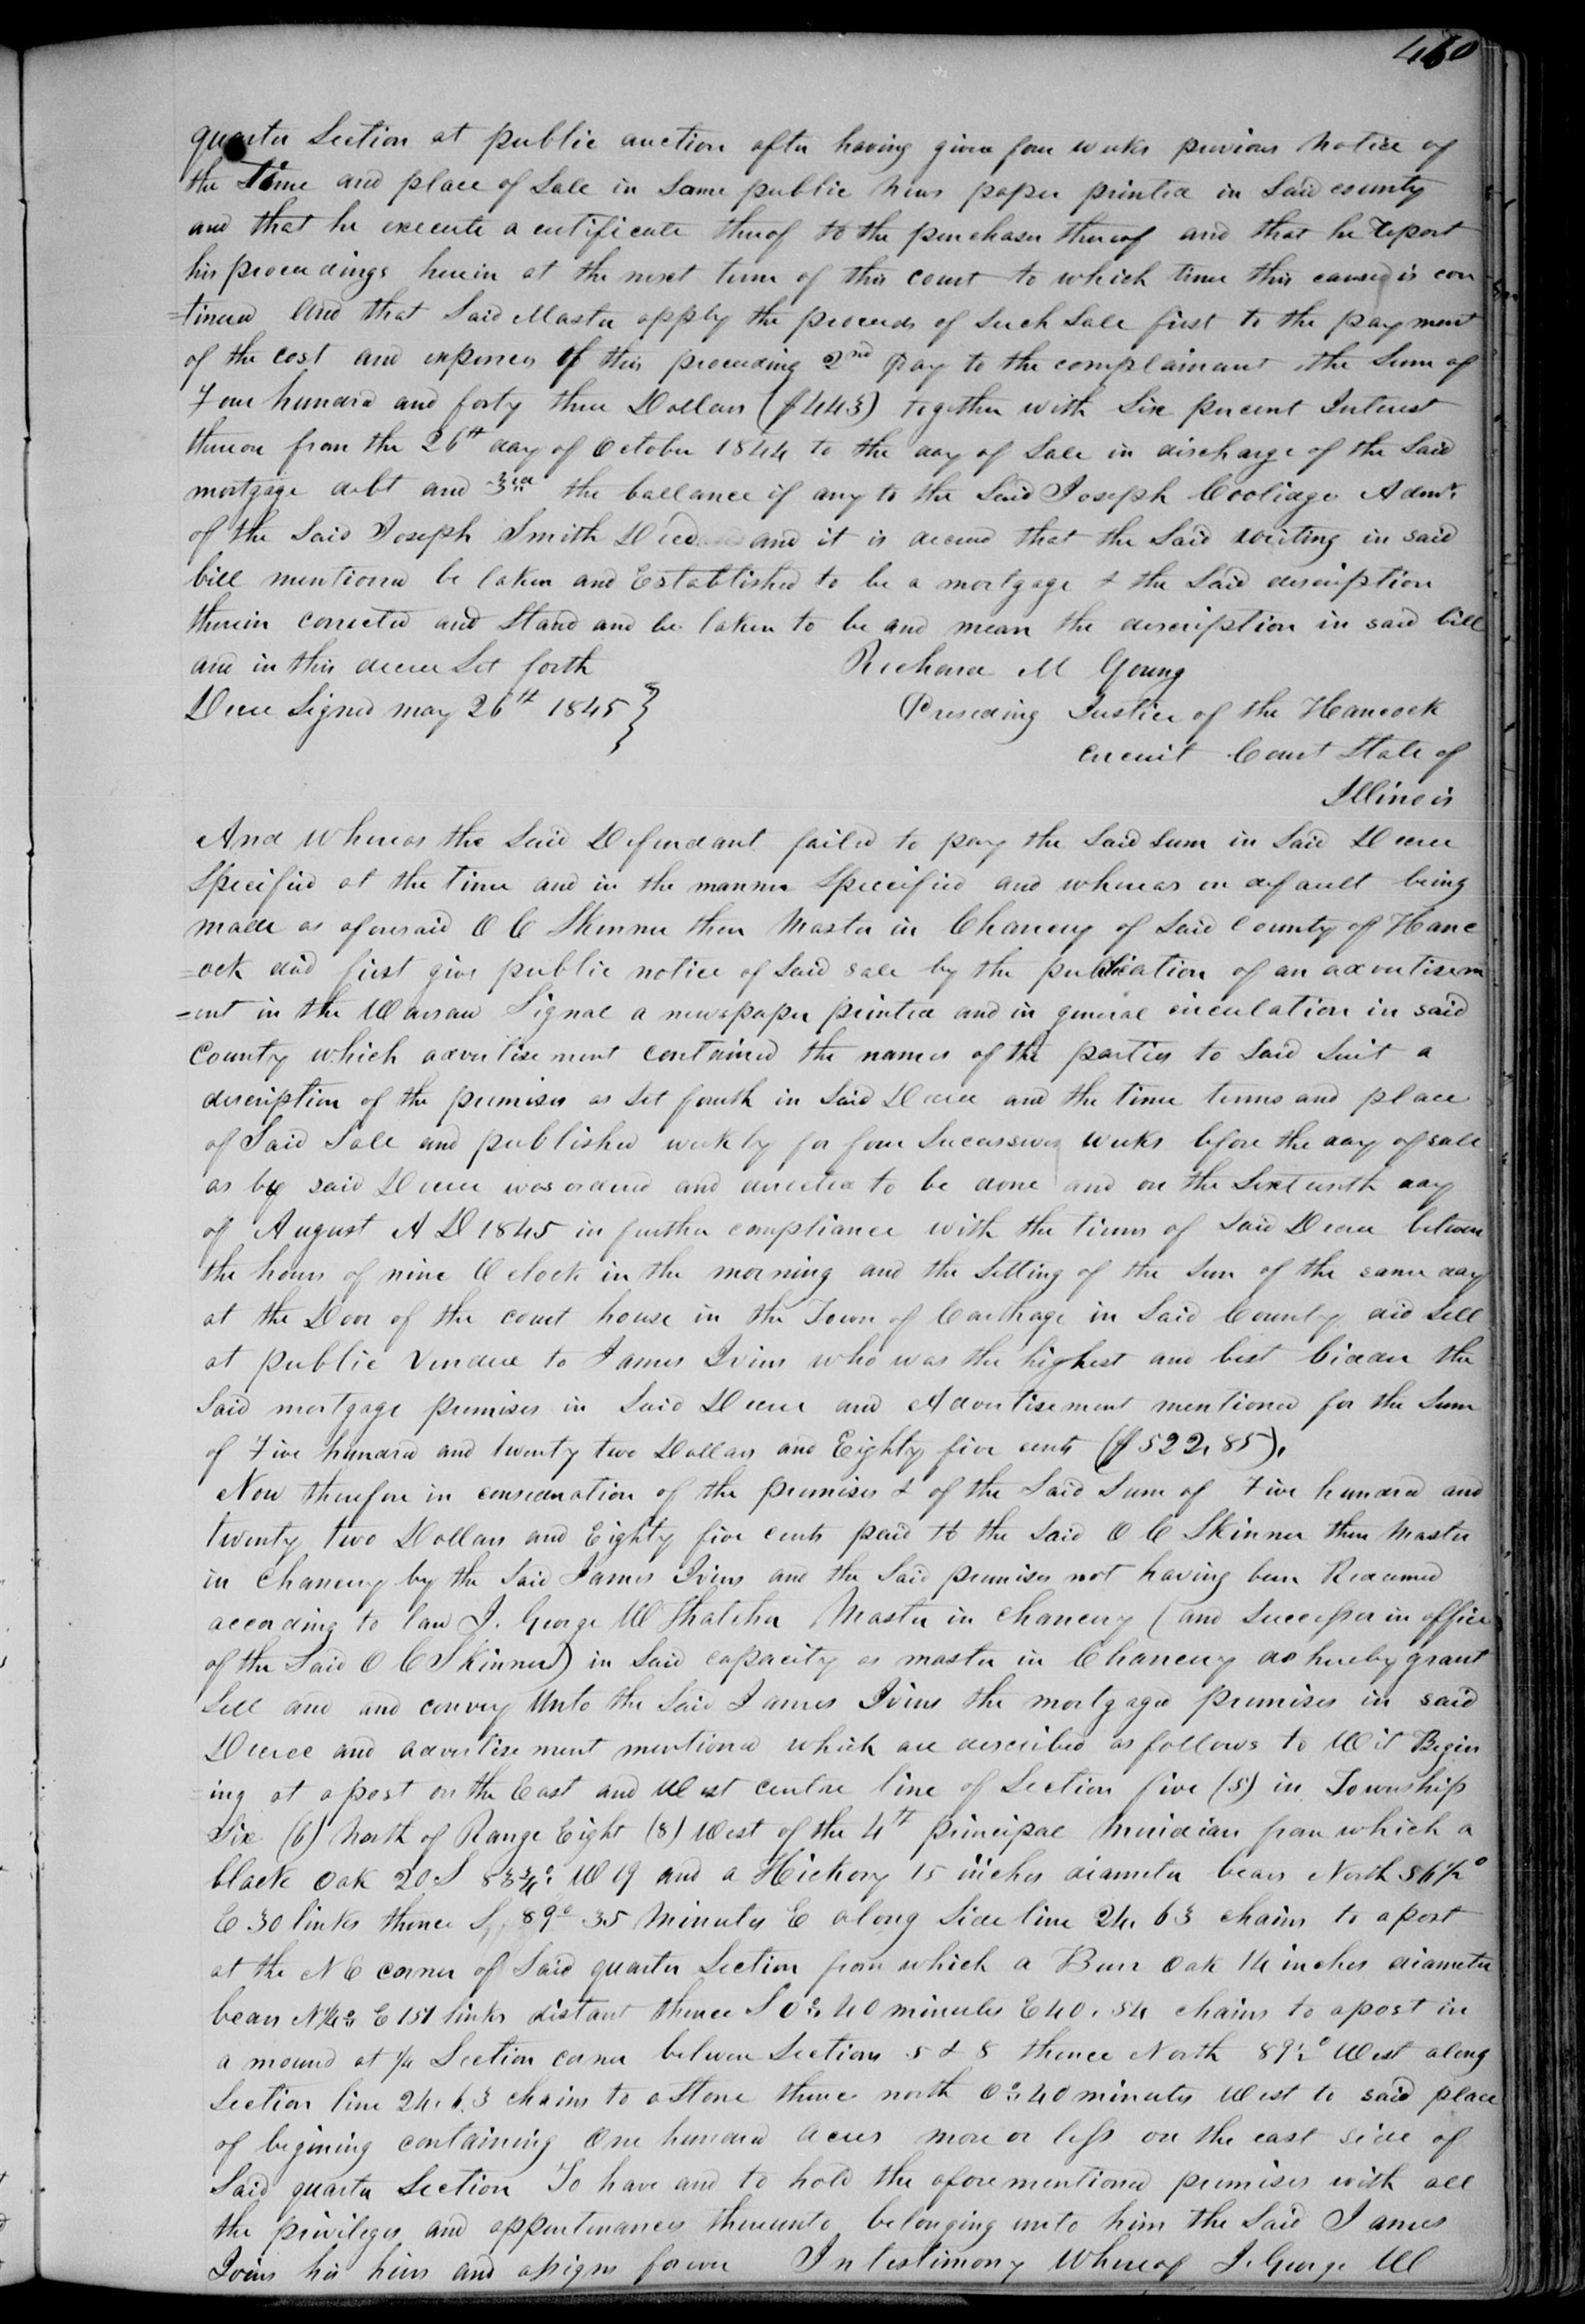 460
quarter Section at public auction after having given four weeks previous notice of
the Time and place of Sale in Some public news paper printed in Said county
and that he execute a certificate therof to the purchaser thereof and that he report
his proceedings herein at the next term of this court to which time this cause is con
=tinued And that Said Master apply the proceeds of such Sale first to the payment
of the cost and expences of this proceeding 2nd pay to the complainant the Sum of
Four hundred and forty three Dollars ($443) together with Six percent Interest
thereon from the 26th day of October 1844 to the day of Sale in discharge of the Said
mortgage debt and 3rd the ballance if any to the Said Joseph Coolidge Admr.
of the Said Joseph Smith Decd and it is decreed that the Said writing in said
bill mentioned be taken and Established to be a mortgage & the Said description
therein corrected and Stand and be taken to be and mean the description in said bill
and in this decree Set forth Richard M Young
Decree Signed may 26th 1845 } Preseding Justice of the Hancock
circuit Court State of
Illinois
And whereas the Said Defendant failed to pay the Said Sum in Said Decree
Specified at the time and in the manner Speccified and whereas on default being
made as aforesaid O C Skinner then Master in Chancery of Said County of Hanc
=ock did first give public notice of Said sale by the publication of an advertisem
=ent in the Warsaw Signal a newspaper printed and in general circulation in said
County which advertisement contained the names of the parties to Said Suit a
description of the premises as Set fourth in Said Decree and the time terms and place
of Said Sale and published weekly for four Successives weeks before the day of sale
as by said Decree was ordered and directed to be done and on the Sixteenth day
of August A D 1845 in further compliance with the terms of Said Decree between
the hours of nine O clock in the morning and the Setting of the Sun of the same day
at the Door of the court house in the Town of Carthage in Said County did Sell
at public Vendue to James Ivins who was the highest and best bidder the
Said mortgage premises in Said Decree and Advertisement mentioned for the Sum
of Five hundred and twenty two Dollars and Eighty five cents ($522.85).
Now therefore in consideration of the premises & of the Said Sum of Five hundred and
twenty two Dollars and Eighty five cents paid to the Said O C Skinner then Master
in Chancery by the Said James Ivins and the Said premises not having been Redeemed
according to law I. George W Thatcher Master in chancery (and Successor in office
of the Said O C Skinner) in Said capacity as master in Chancery do hereby grant
Sell and and convey Unto the Said James Ivins the mortgaged premises in said
Decree and advertisement mentioned which are described as follows to Wit Begin
=ing at a post on the East and West centre line of Section five (5) in Township
Six (6) North of Range Eight (8) West of the 4th principal Meridian from which a
black Oak 20 S 83¾° W 19 and a Hickory 15 inches diameter bears North 56½°
E 30 links thence S 89° 35 Minutes E along Side line 24.63 chains to a post
at the N E corner of Said quarter Section from which a Burr Oak 14 inches diameter
bears N¼° E 151 links distant thence S 0° 40 minutes E 40.54 chains to a post in
a mound at ¼ Section corner between Sections 5 & 8 thence North 89½° West along
Section line 24.63 chains to a Stone thence north 0° 40 minutes West to said place
of begining containing One hundred Acres more or less on the east side of
Said quarter Section To have and to hold the aforementioned premises with all
the privileges and appertenances thereunto belonging unto him the Said James
Ivins his heirs and assigns forever In testimony Whereof I. George W